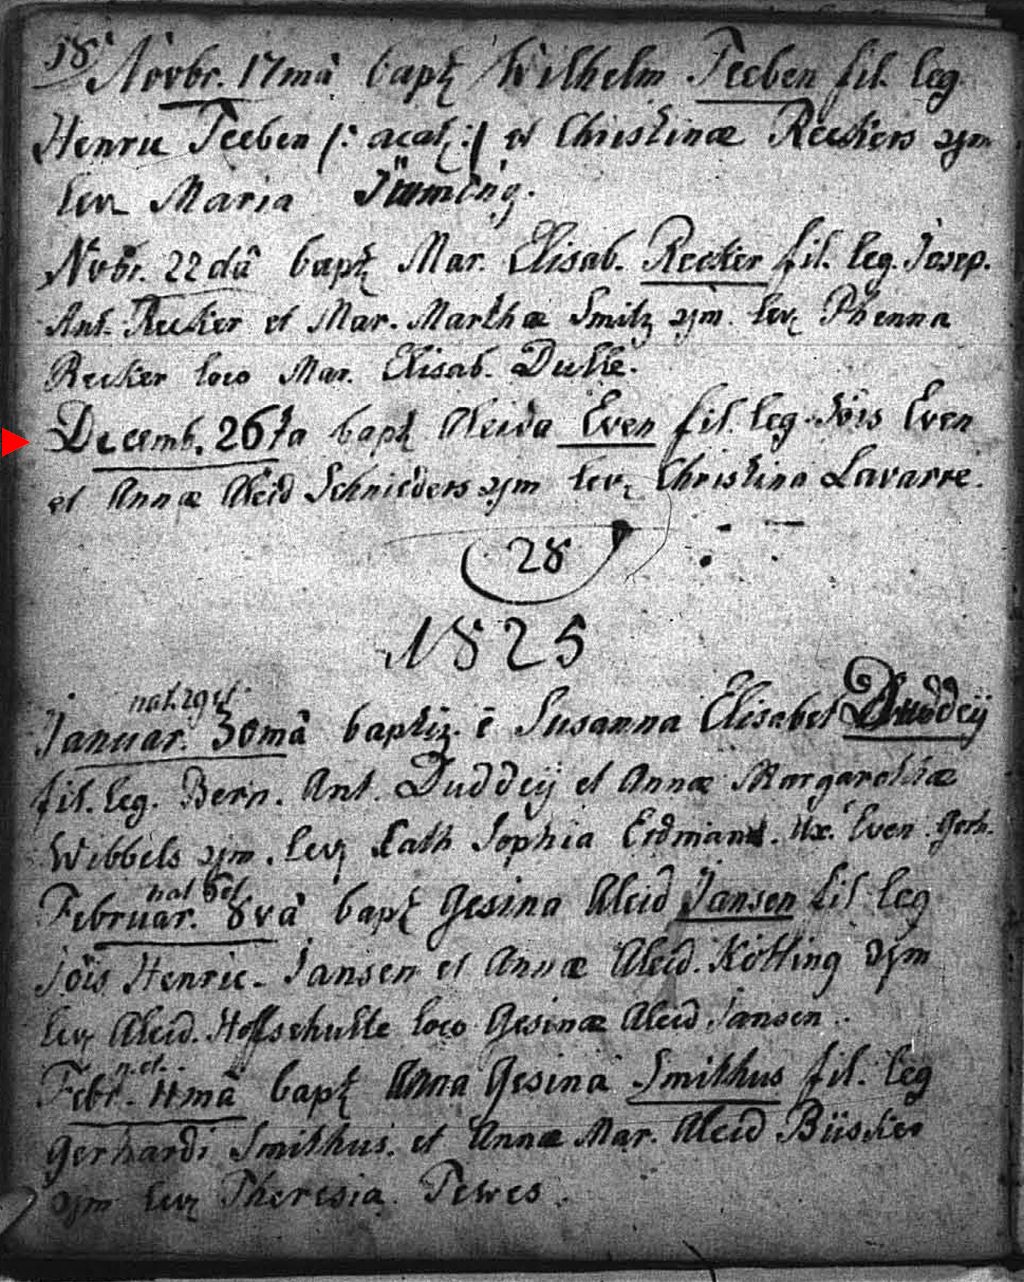 18 Novbr. 17mâ bapt Wilhelm Teeben fil. leg
Henric Teeben /: acat :/ et Christinæ Reekers
lev Maria
Nvbr. 22dâ bapt Mar. Elisab. Recker fil. leg. Josep.
Ant. Recker et Mar. Marthæ Smitz lev Phenna
Recker loco Mar. Elisab. Dulle.
Decemb. 26ta bapt Aleida Even fil. leg. Jöis Even
et Annæ Aleid Schnieders lev Christina Lavarre.
28
1825
nat. 29st
Januar. 30mâ baptiz. ē Susanna Elisabet Duddeÿ
fil. leg. Bern. Ant. Duddeÿ et Annæ Margarethæ
Wibbels lev Cath Sophia Erdman. Ux. Even Gerh.
nat
Februar. 8vâ bapt Gesina Aleid Jansen fil leg
Jöis Henric. Jansen et Annæ Aleid. Kötting
lev Aleid. Hoffschulte loco Gesinæ Aleid Jansen.
Febr. 11mâ bapt Anna Gesina Smithus fil. leg
Gerhardi Smithus. et Annæ Mar. Aleid Büsker
lev Theresia Tewes.